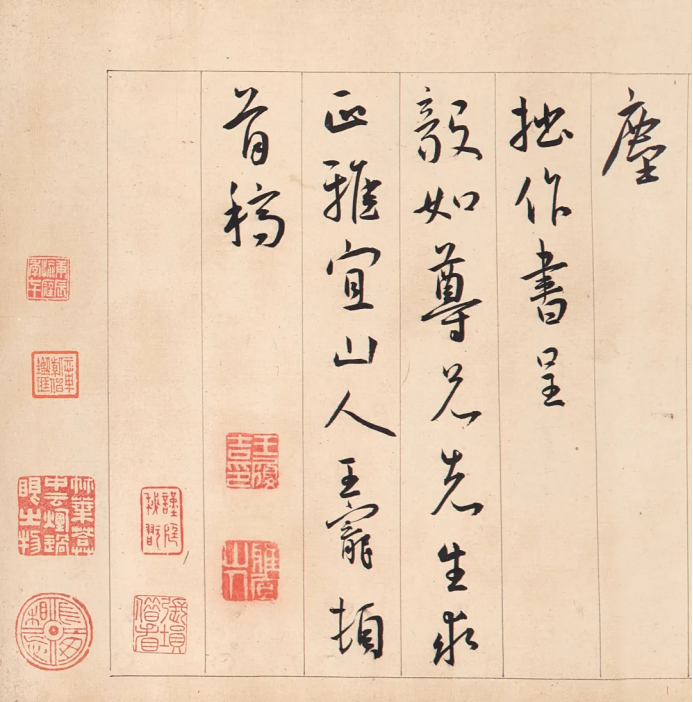 塵
拙作書呈
毅如尊兄先生求
正雅宜山人王寵頓
首稿
王履吉印
雅宜山人
長毋相忘